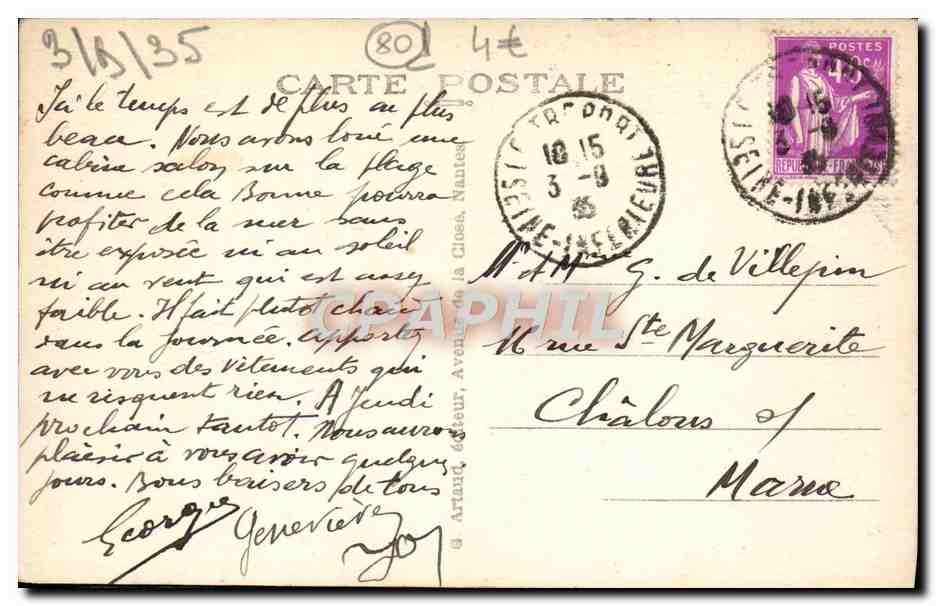 3/9/35
80
4€
CARTE POSTALE
Ici le temps est de plus en plus
beau. Nous avons loué une
cabine salon sur la plage
comme cela Bonne pourra
profiter de la mer sans
être exposée ni au soleil
ni au vent qui est assez
faible. Il fait plutot chaud
dans la journée. apportez
avec vous des vêtements qui
ne risquent rien. A Jeudi
prochain tantot. Nous aurons
plaisir à vous avoir quelques
jours. Bons baisers de tous
Georges
Geneviève
G. Artaud, éditeur, Avenue de la Close, Nantes
LE TREPORT
10 15
3 -9
35
SEINE-INFERIEURE
POSTES
40c
REPUBLIQUE-FRANÇAISE
10 15
3 -9
SEINE-INFERIEURE
Mr et Mme G. de Villepin
16 rue Ste Marguerite
Châlons s/
Marne
CPAPHIL